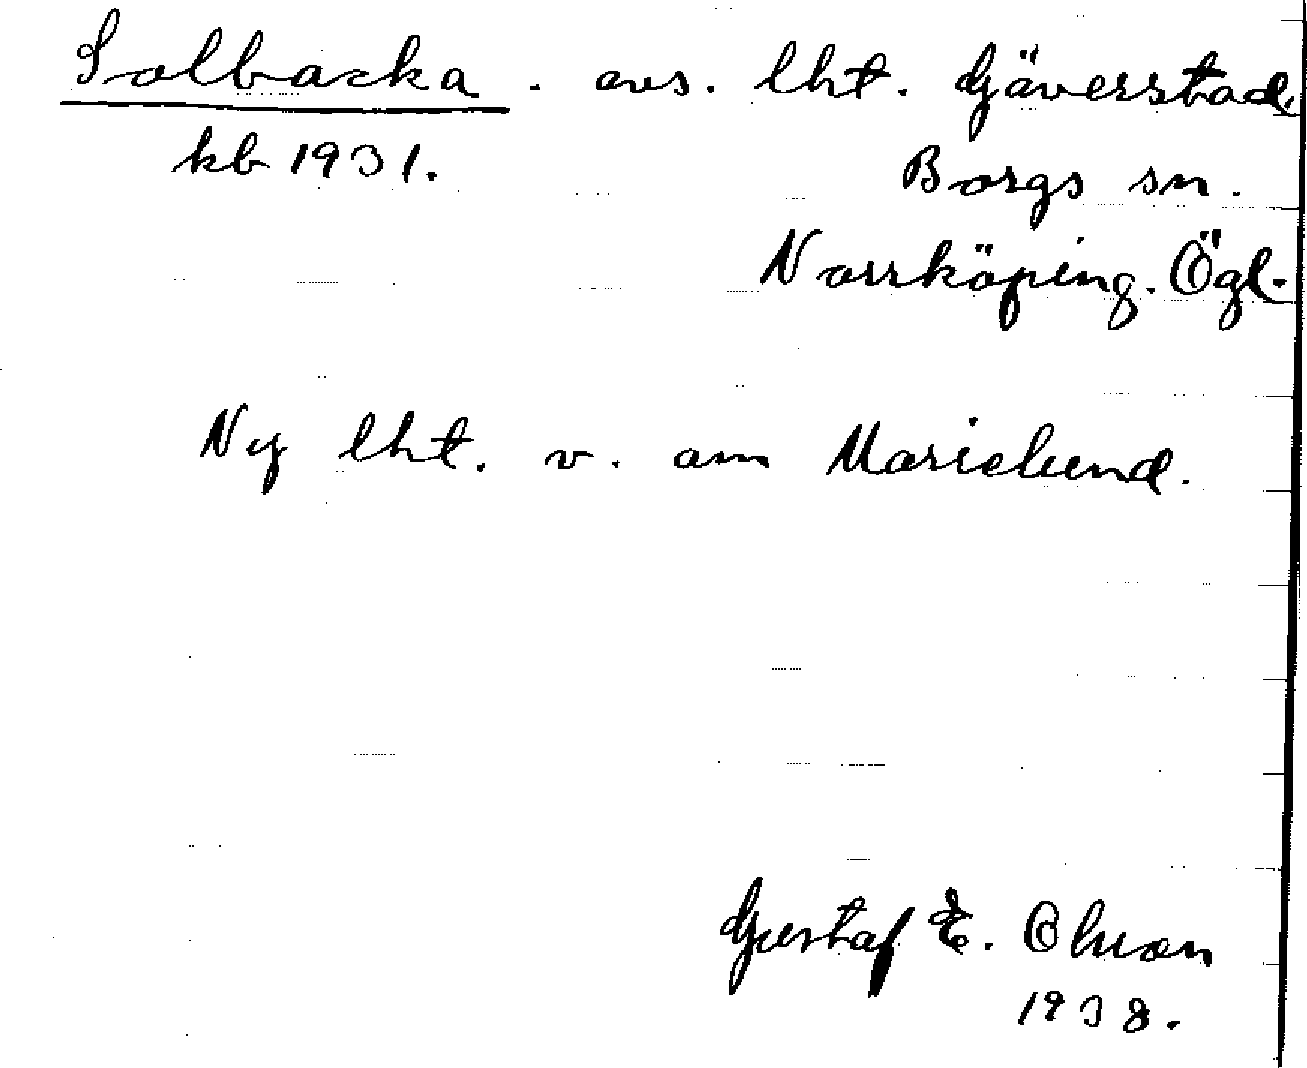 Solbacka . avs. lht. Gäverstad,
kb 1931. Borgs sn.
Norrköping. Ögl.
Ny lht. v. om Marielund.
Gustaf E. Olsson
1938.